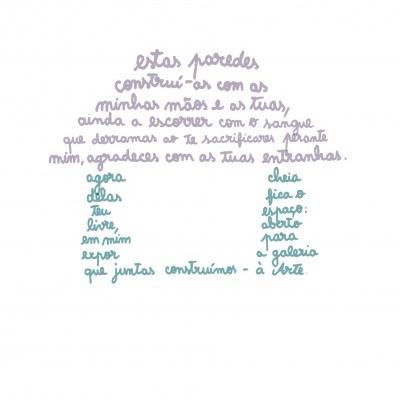 estas paredes
construí-as com as
minhas mãos e as tuas,
ainda a escorrer com o sangue
que derramas ao te sacrificares perante
mim, agradeces com as tuas entranhas.
agora cheia
delas fica o
teu espaço:
livre, aberto
em mim para
expor a galeria
que juntas construímos - à Arte.